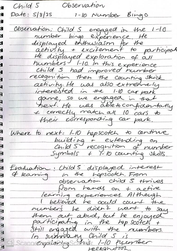 Child S Observation
Date: 5/8/25 1-20 Number Bingo
Observation: Child S engaged in the 1-20
number bingo experience. He
displayed enthusiasm for the
activity + excitement to participate.
He displayed exploration of all
numbers 1-20 in this experience.
Child S had improved number
recognition then the counting stick
activity. He was also extremely
interested in the 1-10 car park
game, so we engaged in that
too. He was able to
correctly match all 10 cars to
their corresponding car park.
Where to next: 1-10 hopscotch to continue
building + extending on
Child S recognition of number
symbols + 1-10 counting skills
Evaluation: Child S displayed interest
+ learning in the hopscotch. From
observation child S thrives
from hands on, + active
learning experiences. Although
I believed he could count the
numbers he didn't want to say
them out aloud, but he enjoyed
participating in the hopscotch +
still engaged with the numbers
in
exploring his 1-10 Number